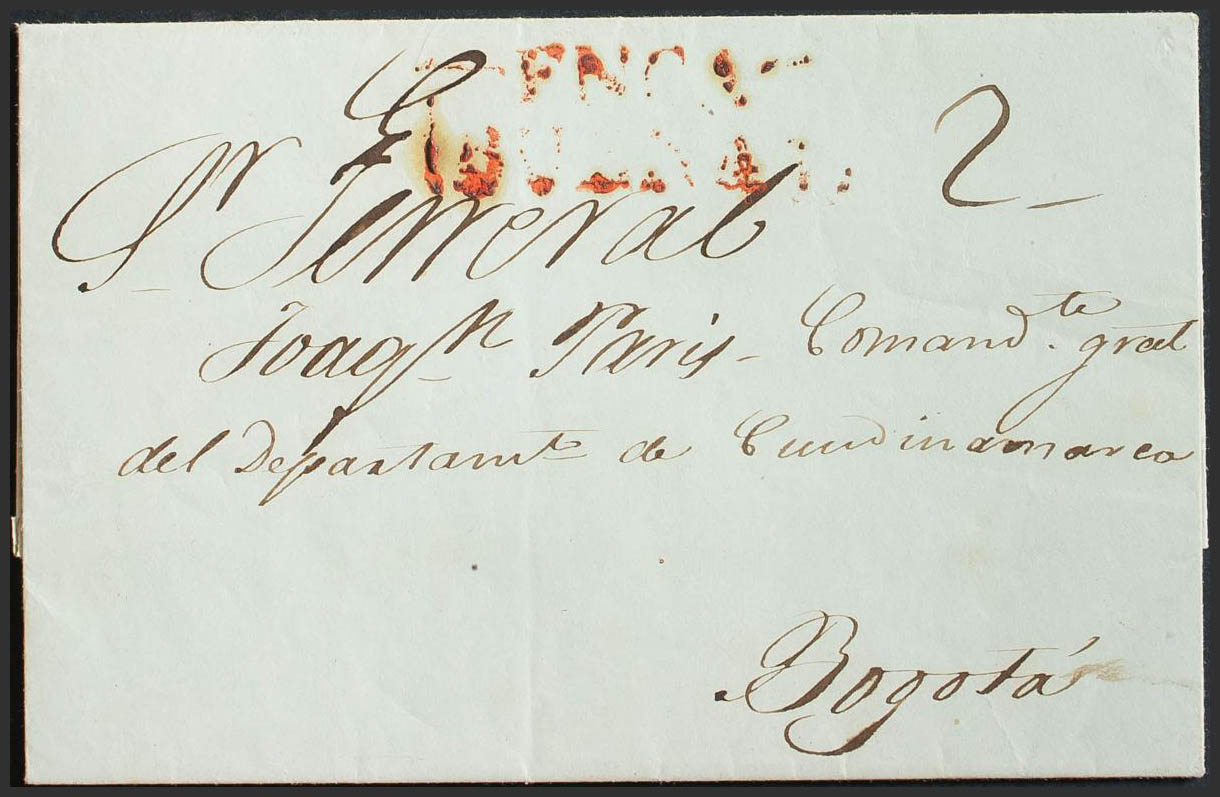 2_
Sr. Jeneral
Joaqn. Paris_ Comandte. gral
del Departamto. de Cundinamarca
Bogotá